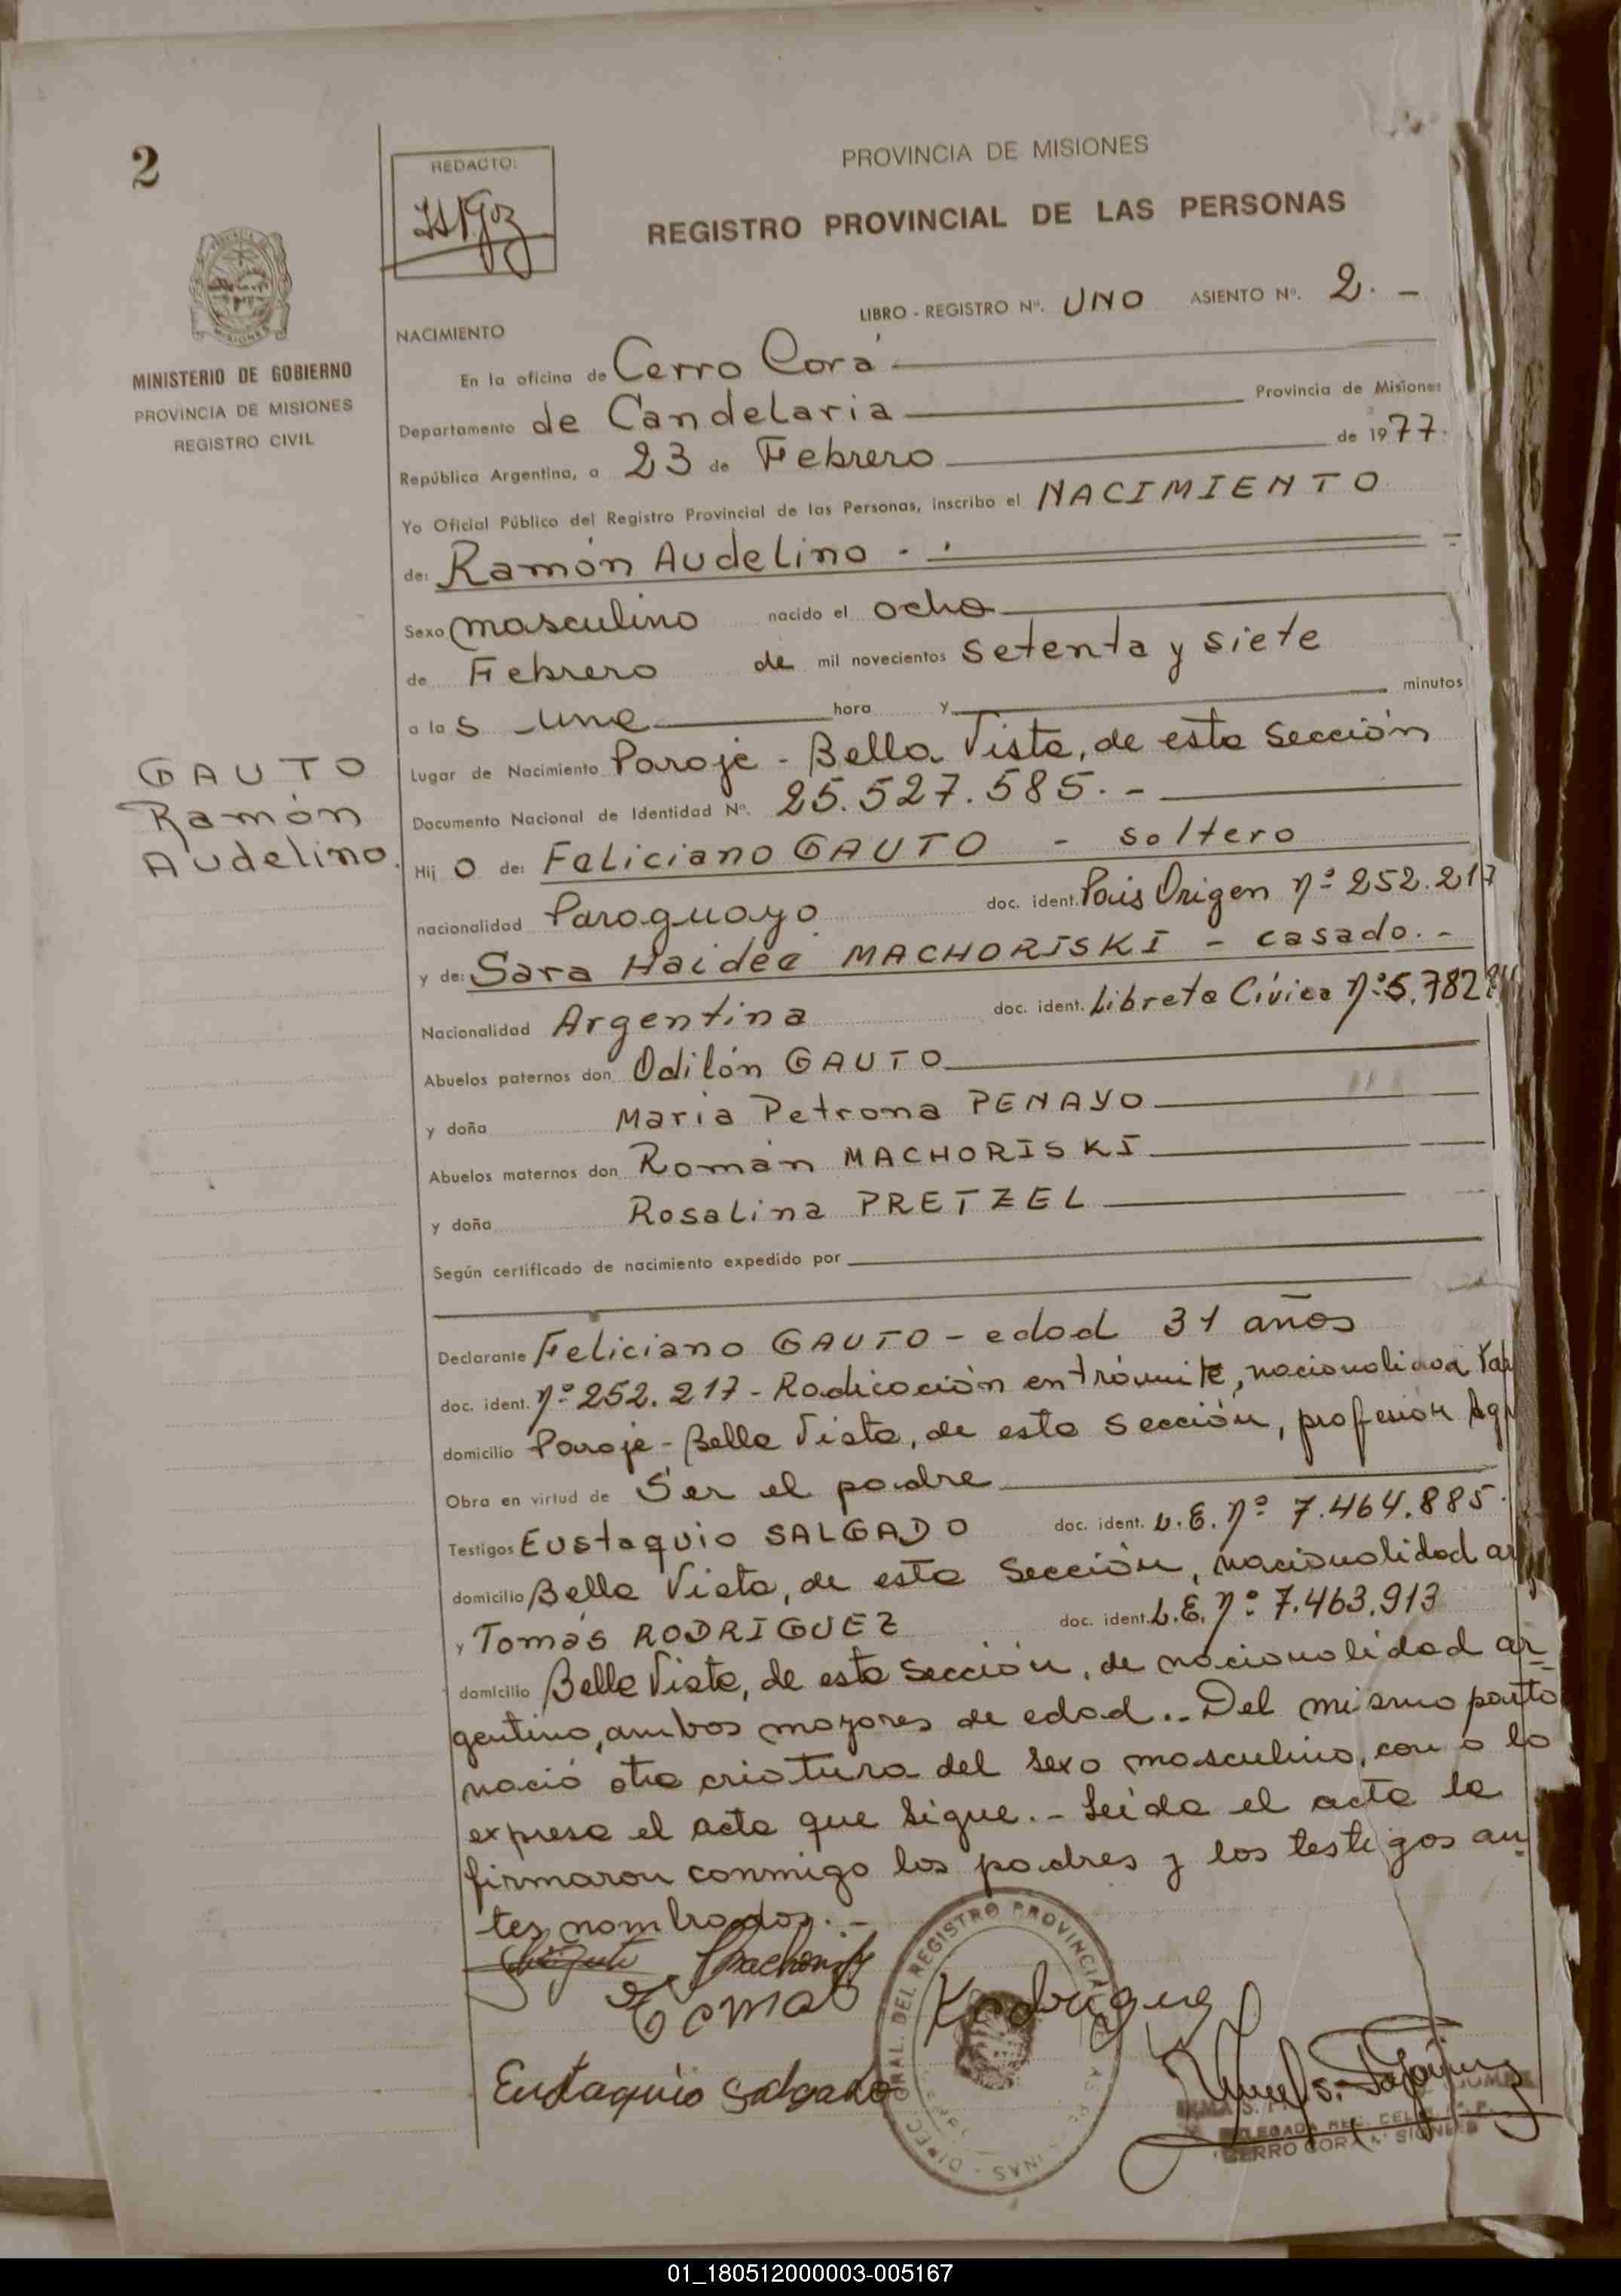 2
REDACTO:
PROVINCIA DE MISIONES
REGISTRO PROVINCIAL DE LAS PERSONAS
MINISTERIO DE GOBIERNO
PROVINCIA DE MISIONES
REGISTRO CIVIL
LIBRO - REGISTRO Nº. UNO ASIENTO Nº. 2. -
NACIMIENTO
En la oficina de Cerro Corá
Departamento de Candelaria Provincia de Misiones
República Argentina, a 23 de Febrero de 1977.
Yo Oficial Público del Registro Provincial de las Personas, inscribo el NACIMIENTO
de: Ramón Audelino - .
Sexo masculino nacido el ocho
de Febrero de mil novecientos setenta y siete
a las una hora y minutos
Lugar de Nacimiento Paraje - Bella Vista, de esta Sección
Documento Nacional de Identidad Nº. 25.527.585. -
GAUTO
Ramón
Audelino.
Hijo de: Feliciano GAUTO - soltero
nacionalidad Paraguayo doc. ident. Pais Origen nº 252.217
y de: Sara Haidee MACHORISKI - casada. -
Nacionalidad Argentina doc. ident. Libreta Cívica nº 5.782
Abuelos paternos don Odilón GAUTO
y doña Maria Petrona PENAYO
Abuelos maternos don Román MACHORISKI
y doña Rosalina PRETZEL
Según certificado de nacimiento expedido por
Declarante Feliciano GAUTO - edad 31 años
doc. ident. nº 252.217 - Radicación en trámite, nacionalidad
domicilio Paraje - Bella Vista, de esta Sección, profesión
Obra en virtud de Ser el padre
Testigos Eustaquio SALGADO doc. ident. L.E. nº 7.464.885.
domicilio Bella Vista, de esta Sección, nacionalidad ar
y Tomás RODRIGUEZ doc. ident. L.E. nº 7.463.913
domicilio Bella Vista, de esta Sección, de nacionalidad ar-
gentino, ambos mayores de edad.- Del mismo parto
nació otra criatura del sexo masculino, con o lo
expresa el acta que sigue.- Leida el acta la
firmaron conmigo los padres y los testigos an-
tes nombrados. -
Tomas Rodriguez
Eustaquio Salgado
CERRO CORA MISIONES
01_180512000003-005167